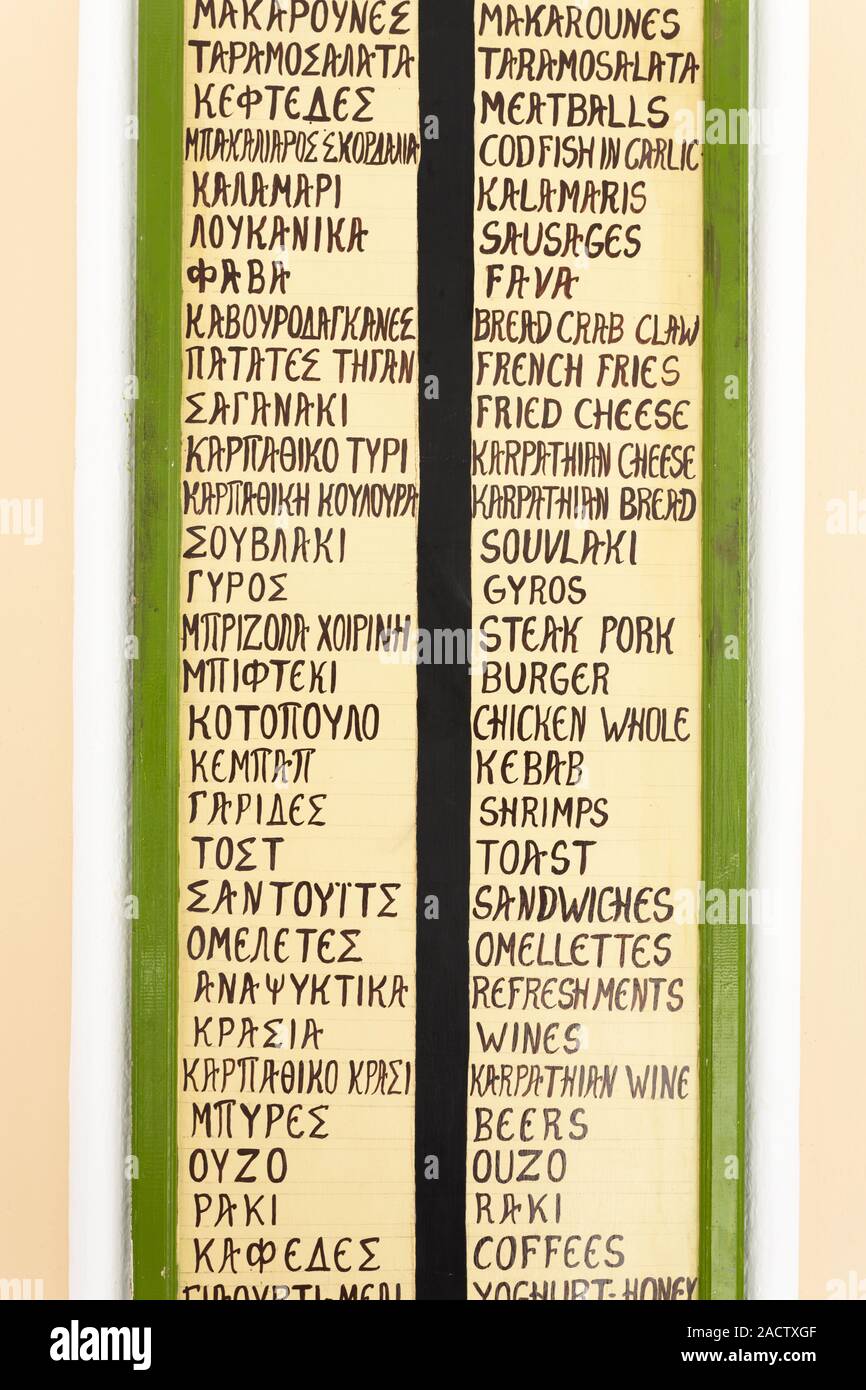 ΜΑΚΑΡΟΥΝΕΣ MAKAROUNES
ΤΑΡΑΜΟΣΑΛΑΤΑ TARAMOSALATA
ΚΕΦΤΕΔΕΣ MEATBALLS
ΜΠΑΚΑΛΙΑΡΟΣ ΣΚΟΡΔΑΛΙΑ CODFISH IN GARLIC
ΚΑΛΑΜΑΡΙ KALAMARIS
ΛΟΥΚΑΝΙΚΑ SAUSAGES
ΦΑΒΑ FAVA
ΚΑΒΟΥΡΟΔΑΓΚΑΝΕΣ BREAD CRAB CLAW
ΠΑΤΑΤΕΣ ΤΗΓΑΝ FRENCH FRIES
ΣΑΓΑΝΑΚΙ FRIED CHEESE
ΚΑΡΠΑΘΙΚΟ ΤΥΡΙ KARPATHIAN CHEESE
ΚΑΡΠΑΘΙΚΗ ΚΟΥΛΟΥΡΑ KARPATHIAN BREAD
ΣΟΥΒΛΑΚΙ SOUVLAKI
ΓΥΡΟΣ GYROS
ΜΠΡΙΖΟΛΑ ΧΟΙΡΙΝΗ STEAK PORK
ΜΠΙΦΤΕΚΙ BURGER
ΚΟΤΟΠΟΥΛΟ CHICKEN WHOLE
ΚΕΜΠΑΠ KEBAB
ΓΑΡΙΔΕΣ SHRIMPS
ΤΟΣΤ TOAST
ΣΑΝΤΟΥΪΤΣ SANDWICHES
ΟΜΕΛΕΤΕΣ OMELLETTES
ΑΝΑΨΥΚΤΙΚΑ REFRESHMENTS
ΚΡΑΣΙΑ WINES
ΚΑΡΠΑΘΙΚΟ ΚΡΑΣΙ KARPATHIAN WINE
ΜΠΥΡΕΣ BEERS
ΟΥΖΟ OUZO
ΡΑΚΙ RAKI
ΚΑΦΕΔΕΣ COFFEES
ΓΙΑΟΥΡΤΙ-ΜΕΛΙ YOGHURT-HONEY
alamy
Image ID: 2ACTXGF
www.alamy.com